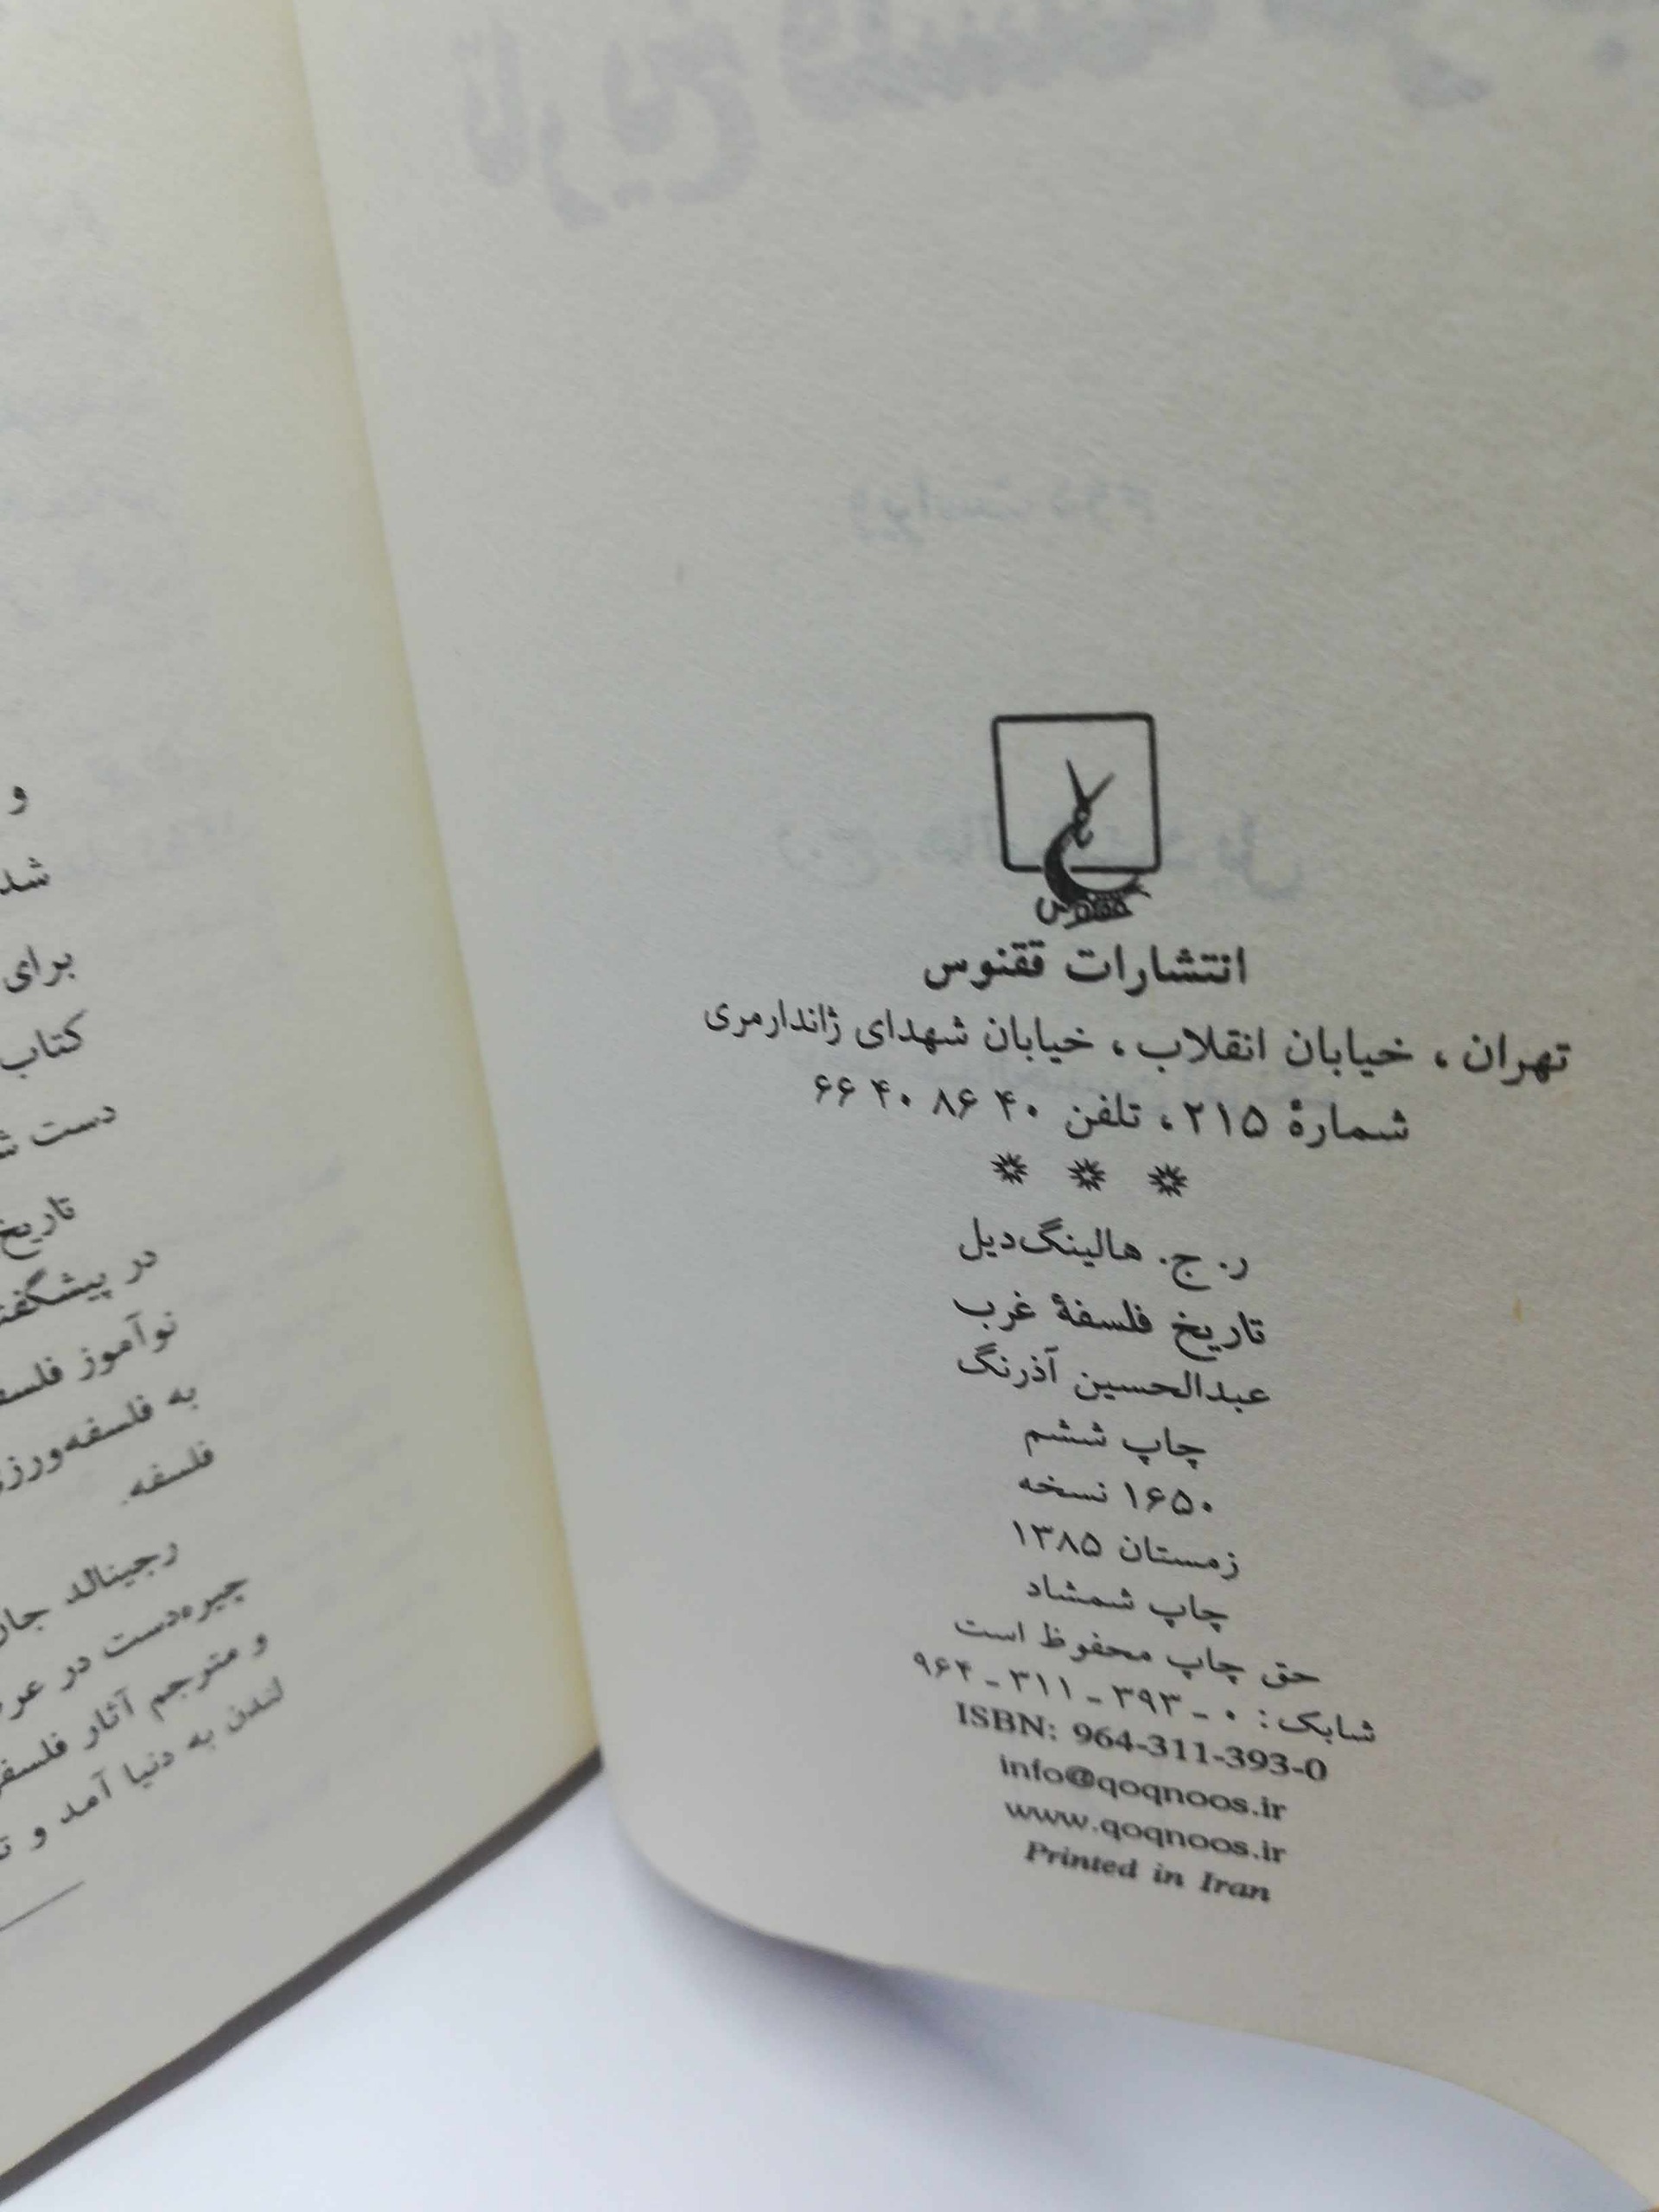 ققنوس
انتشارات ققنوس
تهران، خیابان انقلاب، خیابان شهدای ژاندارمری
شمارهٔ ۲۱۵، تلفن ۴۰ ۸۶ ۴۰ ۶۶
* * *
ر. ج. هالینگ‌دیل
تاریخ فلسفهٔ غرب
عبدالحسین آذرنگ
چاپ ششم
۱۶۵۰ نسخه
زمستان ۱۳۸۵
چاپ شمشاد
حق چاپ محفوظ است
شابک: ۰ - ۳۹۳ - ۳۱۱ - ۹۶۴
ISBN: 964-311-393-0
info@qoqnoos.ir
www.qoqnoos.ir
Printed in Iran
و
شد
برای
کتاب
دست
تاریخ
در
نوآموز
به فلسفه‌ورزی
فلسفه.
رجینالد
چیره‌دست در
و مترجم آثار
لندن به دنیا آمد و